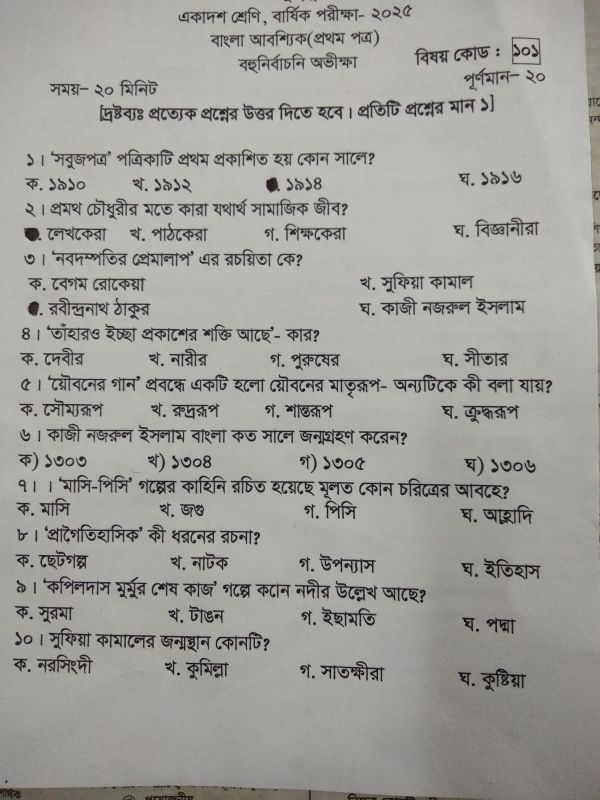 একাদশ শ্রেণি, বার্ষিক পরীক্ষা- ২০২৫
বাংলা আবশ্যিক(প্রথম পত্র)
বহুনির্বাচনি অভীক্ষা
বিষয় কোড : ১০১
সময়- ২০ মিনিট
পূর্ণমান- ২০
[দ্রষ্টব্যঃ প্রত্যেক প্রশ্নের উত্তর দিতে হবে। প্রতিটি প্রশ্নের মান ১]
১। 'সবুজপত্র' পত্রিকাটি প্রথম প্রকাশিত হয় কোন সালে?
ক. ১৯১০ খ. ১৯১২ ১৯১৪ ঘ. ১৯১৬
২। প্রমথ চৌধুরীর মতে কারা যথার্থ সামাজিক জীব?
লেখকেরা খ. পাঠকেরা গ. শিক্ষকেরা ঘ. বিজ্ঞানীরা
৩। 'নবদম্পতির প্রেমালাপ' এর রচয়িতা কে?
ক. বেগম রোকেয়া খ. সুফিয়া কামাল
রবীন্দ্রনাথ ঠাকুর ঘ. কাজী নজরুল ইসলাম
৪। 'তাঁহারও ইচ্ছা প্রকাশের শক্তি আছে'- কার?
ক. দেবীর খ. নারীর গ. পুরুষের ঘ. সীতার
৫। 'যৌবনের গান' প্রবন্ধে একটি হলো যৌবনের মাতৃরূপ- অন্যটিকে কী বলা যায়?
ক. সৌম্যরূপ খ. রুদ্ররূপ গ. শান্তরূপ ঘ. ক্রুদ্ধরূপ
৬। কাজী নজরুল ইসলাম বাংলা কত সালে জন্মগ্রহণ করেন?
ক) ১৩০৩ খ) ১৩০৪ গ) ১৩০৫ ঘ) ১৩০৬
৭। । 'মাসি-পিসি' গল্পের কাহিনি রচিত হয়েছে মূলত কোন চরিত্রের আবহে?
ক. মাসি খ. জগু গ. পিসি ঘ. আহ্লাদি
৮। 'প্রাগৈতিহাসিক' কী ধরনের রচনা?
ক. ছোটগল্প খ. নাটক গ. উপন্যাস ঘ. ইতিহাস
৯। 'কপিলদাস মুর্মুর শেষ কাজ' গল্পে কোন নদীর উল্লেখ আছে?
ক. সুরমা খ. টাঙন গ. ইছামতি ঘ. পদ্মা
১০। সুফিয়া কামালের জন্মস্থান কোনটি?
ক. নরসিংদী খ. কুমিল্লা গ. সাতক্ষীরা ঘ. কুষ্টিয়া